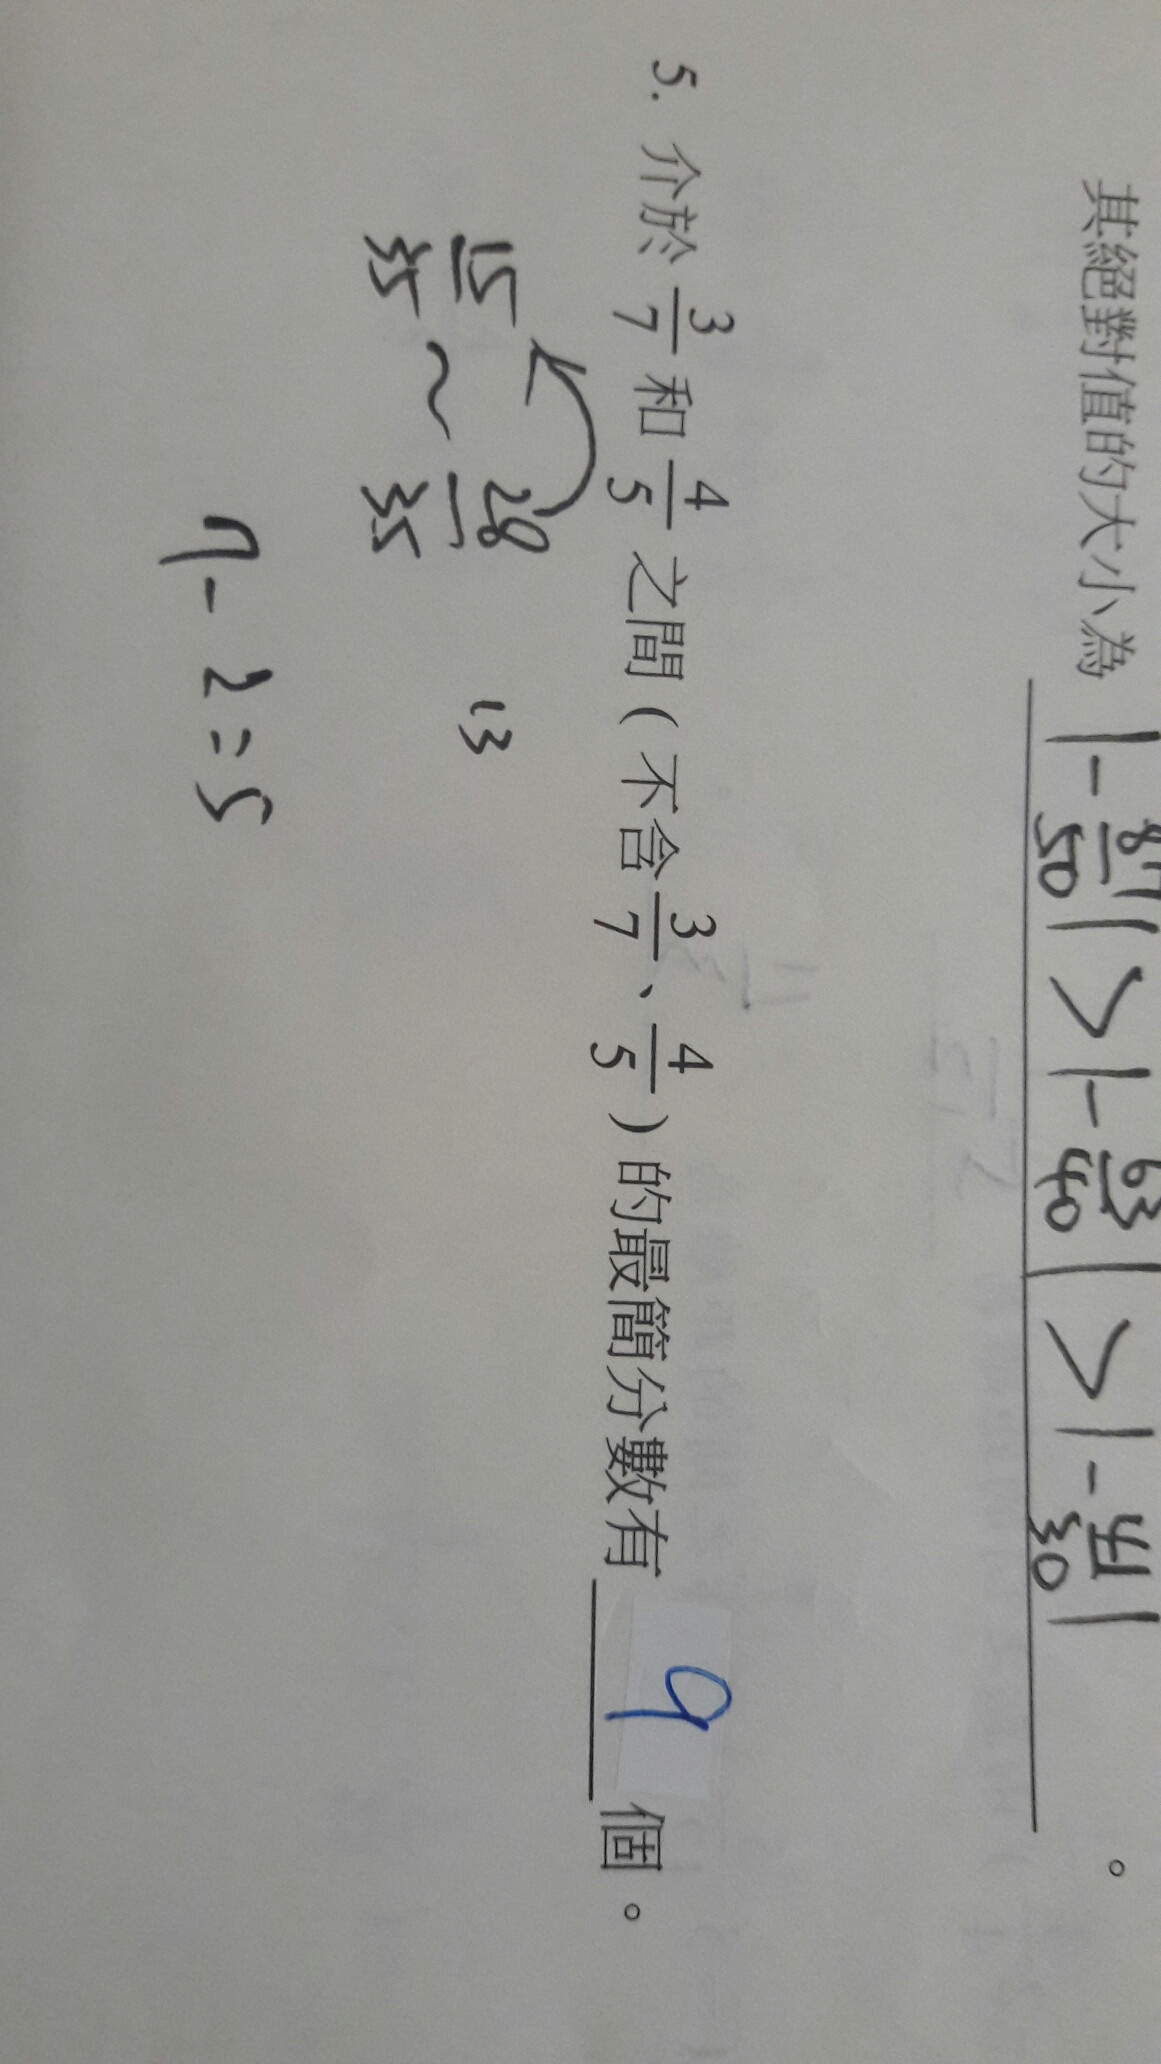 其絕對值的大小為 |-87/50| > |-63/40| > |-41/30| 。
5. 介於 3/7 和 4/5 之間 ( 不含 3/7 、 4/5 ) 的最簡分數有 9 個。
15/35 ~ 28/35 13
7-2=5